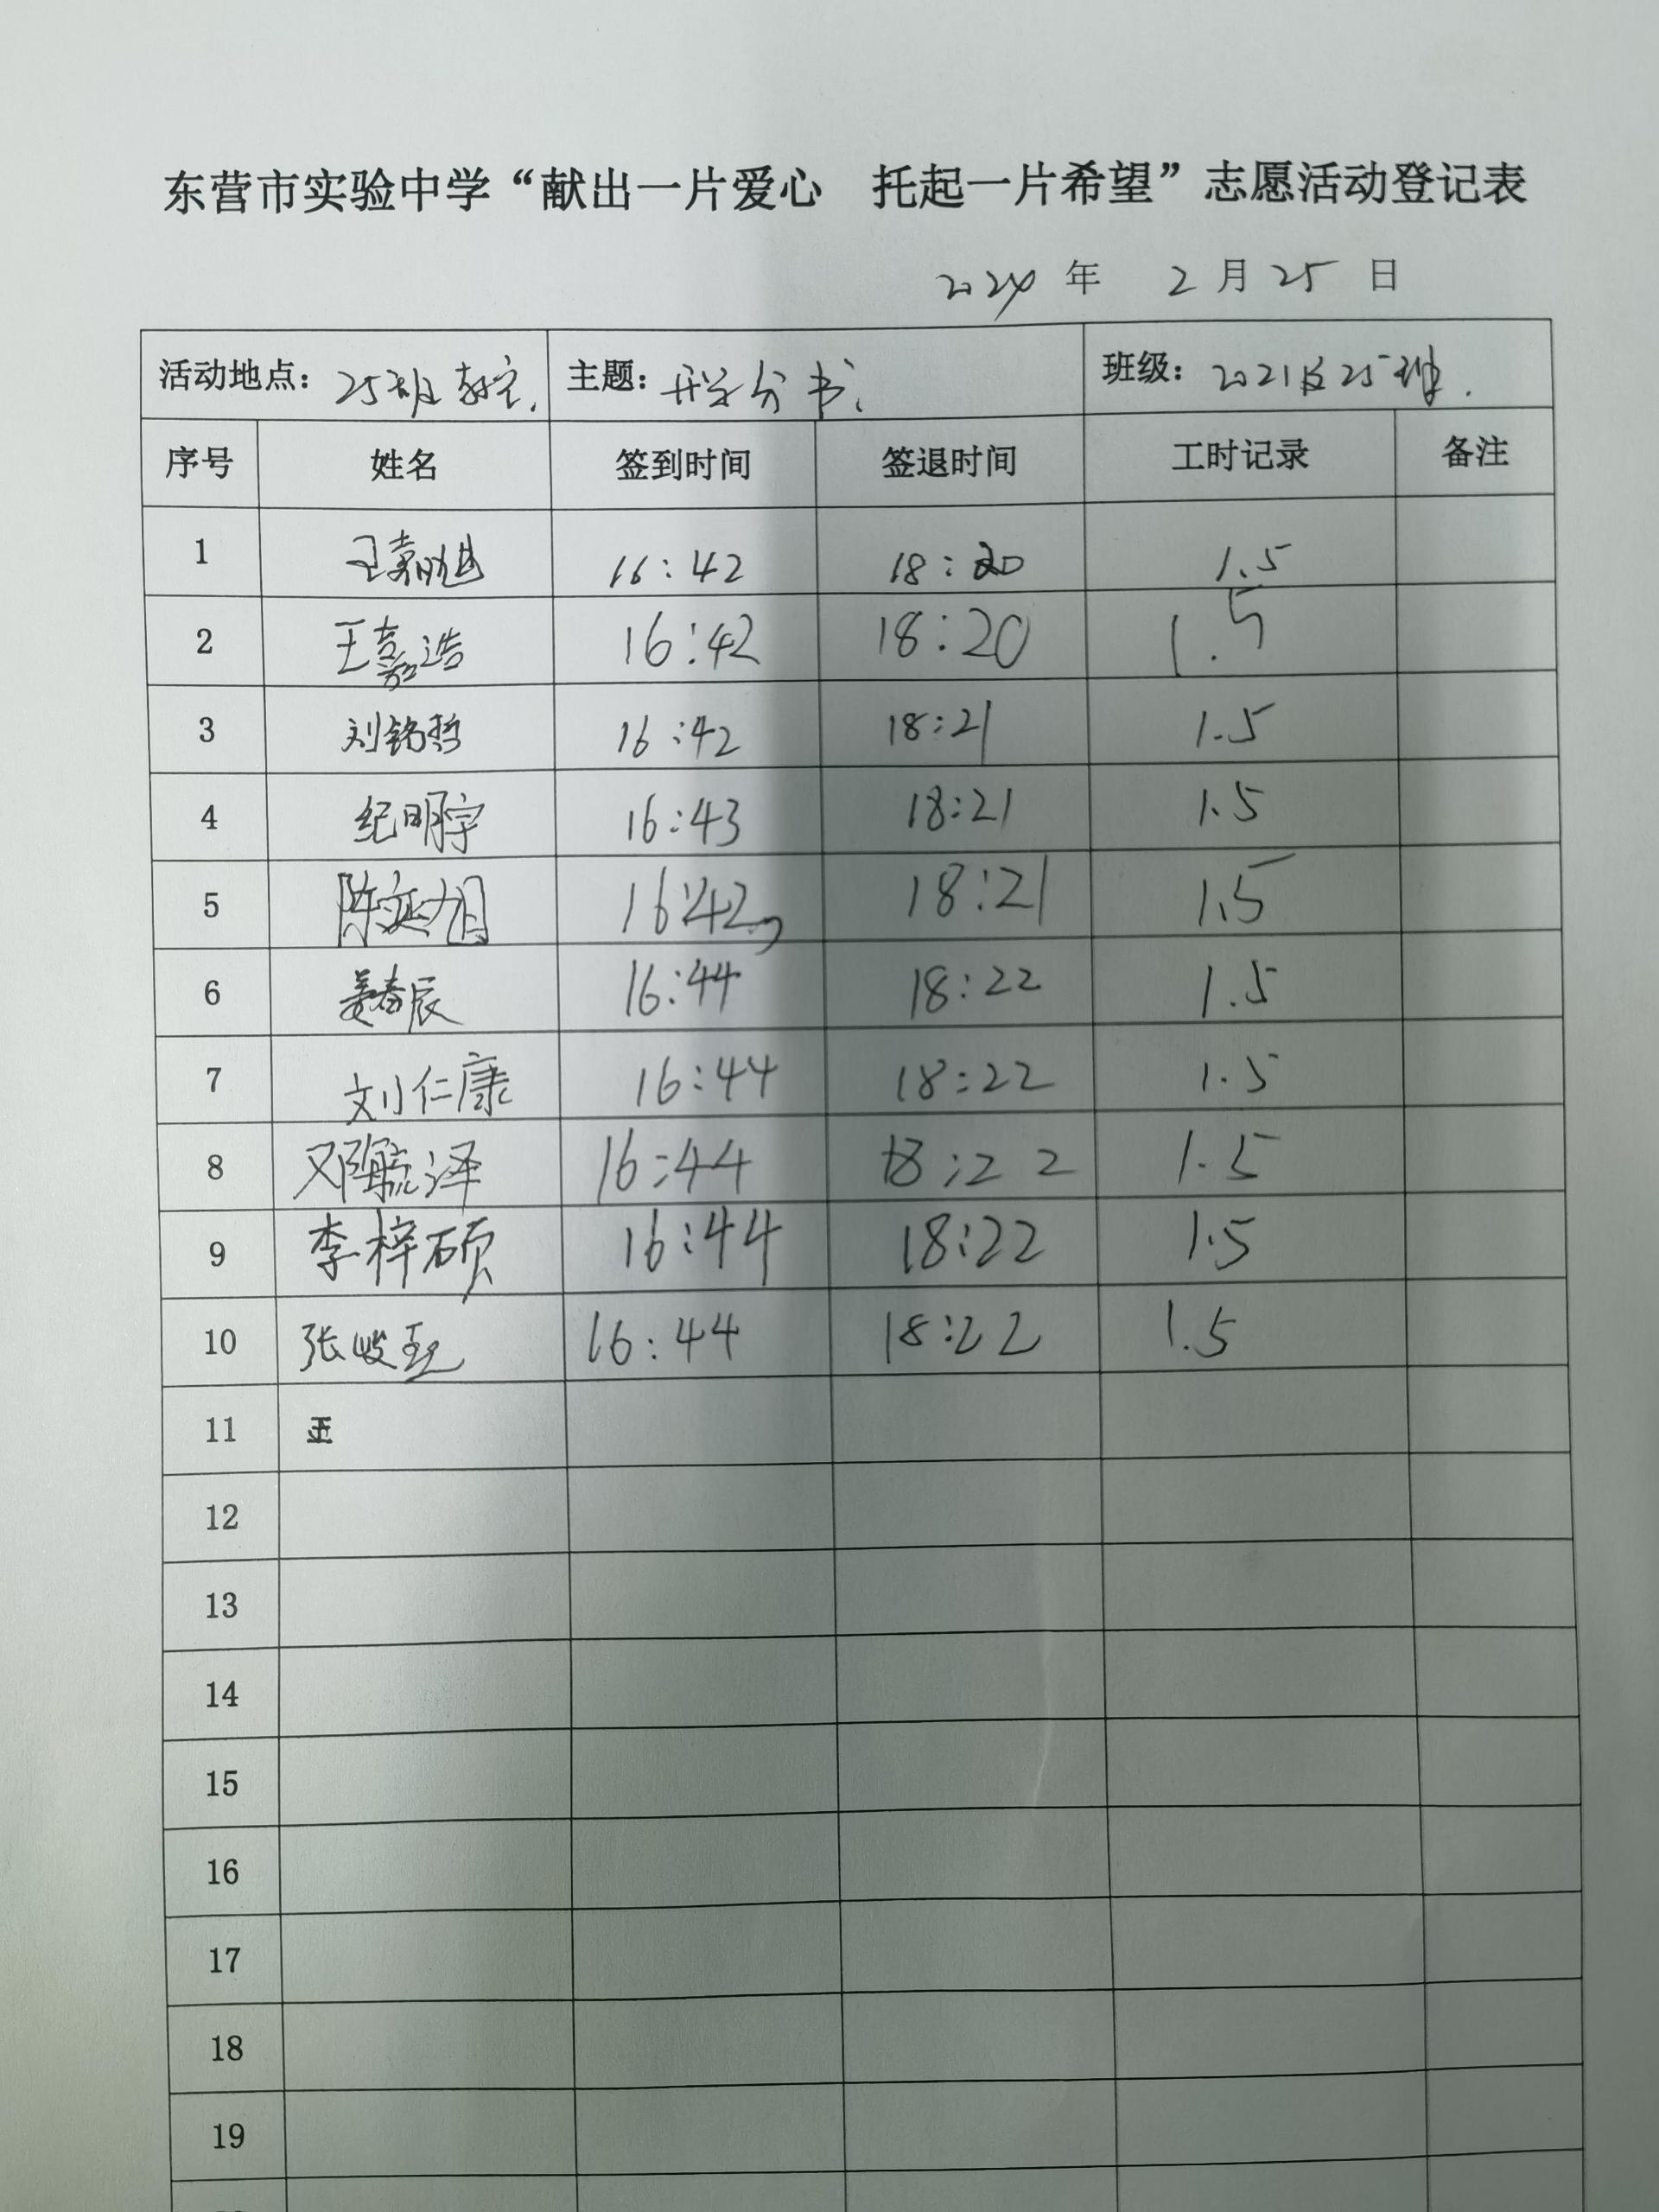 东营市实验中学“献出一片爱心 托起一片希望”志愿活动登记表
2024 年 2 月 25 日
活动地点：25班教室. 主题：开学分书、 班级：2021级25班.
序号 姓名 签到时间 签退时间 工时记录 备注
1 王嘉 16:42 18:20 1.5
2 王嘉浩 16:42 18:20 1.5
3 刘铭哲 16:42 18:21 1.5
4 纪明宇 16:43 18:21 1.5
5 陈延旭 16:42 18:21 1.5
6 姜春辰 16:44 18:22 1.5
7 刘仁康 16:44 18:22 1.5
8 邓毓泽 16:44 18:22 1.5
9 李梓硕 16:44 18:22 1.5
10 张峻 16:44 18:22 1.5
11
12
13
14
15
16
17
18
19